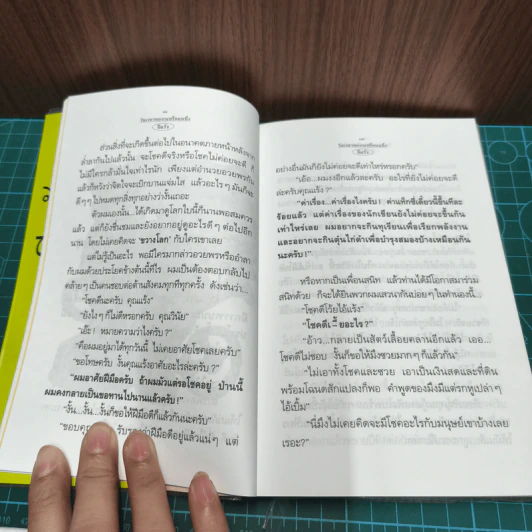 ส่วนสิ่งที่จะเกิดขึ้นต่อไปในอนาคตภายหน้าหลังจาก
ล่ำลากันไปแล้วนั้น จะโชคดีจริงหรือโชคไม่ค่อยจะดี
ไม่มีใครกล้ามั่นใจเท่าไรนัก เพียงแต่อำนวยอวยพรกัน
แล้วก็หวังว่าจิตใจจะเบิกบานแจ่มใส แล้วอะไรๆ มันก็จะ
ดีๆๆ ไปหมดทุกสิ่งทุกอย่างว่างั้นเถอะ
ตัวผมเองนั้น...ได้เกิดมาดูโลกใบนี้ก็นานพอสมควร
แล้ว แต่ก็ยังชื่นชมและยังอยากอยู่ดูอะไรดีๆ ต่อไปอีก
นาน โดยไม่เคยคิดจะ 'ขวางโลก' กับใครเขาเลย
แต่ไม่รู้เป็นอะไร พอมีใครมากล่าวอวยพรหรืออำลา
กับผมด้วยประโยคข้างต้นนี้ทีไร ผมเป็นต้องตอบกลับไป
คล้ายๆ เป็นคนชอบต่อต้านสังคมทุกทีทุกครั้ง ดังเช่นว่า...
"โชคดีนะครับ คุณแร้ง"
"ยังไงๆ ก็ไม่ดีหรอกครับ คุณวินัย"
"เอ๊ะ! หมายความว่าไงครับ?"
"คือผมอยู่มาได้ทุกวันนี้ ไม่เคยอาศัยโชคเลยครับ"
"ขอโทษครับ งั้นคุณแร้งอาศัยอะไรล่ะครับ?"
"ผมอาศัยฝีมือครับ ถ้าผมมัวแต่รอโชคอยู่ ป่านนี้
ผมคงกลายเป็นขอทานไปนานแล้วครับ!"
"งั้น...งั้น...งั้นก็ขอให้ฝีมือดีก็แล้วกันนะครับ"
"ขอบคุณ รับรองว่าฝีมือดีอยู่แล้วแน่ๆ แต่
อย่างอื่นมันก็ยังไม่ค่อยจะดีเท่าไหร่หรอกครับ"
"เอ้อ...ผมงงอีกแล้วละครับ อะไรที่ยังไม่ค่อยจะดี
ล่ะครับคุณแร้ง?"
"ค่าเรื่อง...ค่าเรื่องไงครับ! ค่าแท็กซี่เดี๋ยวนี้ขึ้นทีละ
ร้อยแล้ว แต่ค่าเรื่องของนักเขียนยังไม่ค่อยจะขึ้นกัน
เท่าไหร่เลย ผมอยากจะกินทุเรียนเพื่อเรียกพลังงาน
และอยากจะกินตุ๋นไก่ดำเพื่อบำรุงสมองบ้างเหมือนกัน
นะครับ!"
หรือหากเป็นเพื่อนสนิท แล้วท่านได้มีโอกาสมาร่วม
สนิทด้วย ก็จะได้ยินพวกผมเสวนากันบ่อยๆ ในทำนองนี้...
"โชคดีโว้ยไอ้แร้ง"
"อ้าว...กลายเป็นสัตว์เลื้อยคลานอีกแล้ว เออ...
โชคดีไม่ชอบ งั้นก็ขอให้มึงซวยมากๆ ก็แล้วกัน"
"ไม่เอาทั้งโชคและซวย เอาเป็นเงินสดและที่ดิน
พร้อมโฉนดสักแปลงก็พอ คำพูดของมึงมีแต่รกหูเปล่าๆ
ไอ้เบื้อ"
"นี่มึงไม่เคยคิดจะมีโชคอะไรกับมนุษย์เขาบ้างเลย
เรอะ?"